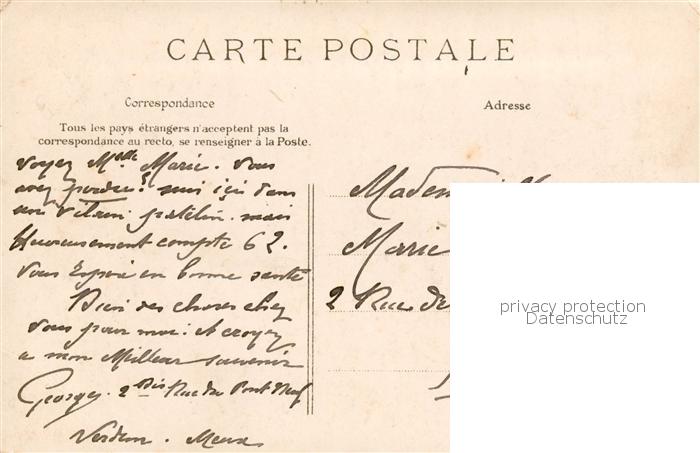 CARTE POSTALE
Correspondance
Adresse
Tous les pays étrangers n'acceptent pas la
correspondance au recto, se renseigner à la Poste.
Voyez Melle Marie. Vous
avez perdu. suis ici dans
un vilain patelin. mais
Heureusement compte 62.
Vous Espère en bonne santé
Bien des choses chez
vous pour moi. et croyez
a mon Meilleur souvenir
Georges. 2 Bis Rue du Pont Neuf
Verdun. Meuse
Marie
2 Rue de
privacy protection
Datenschutz